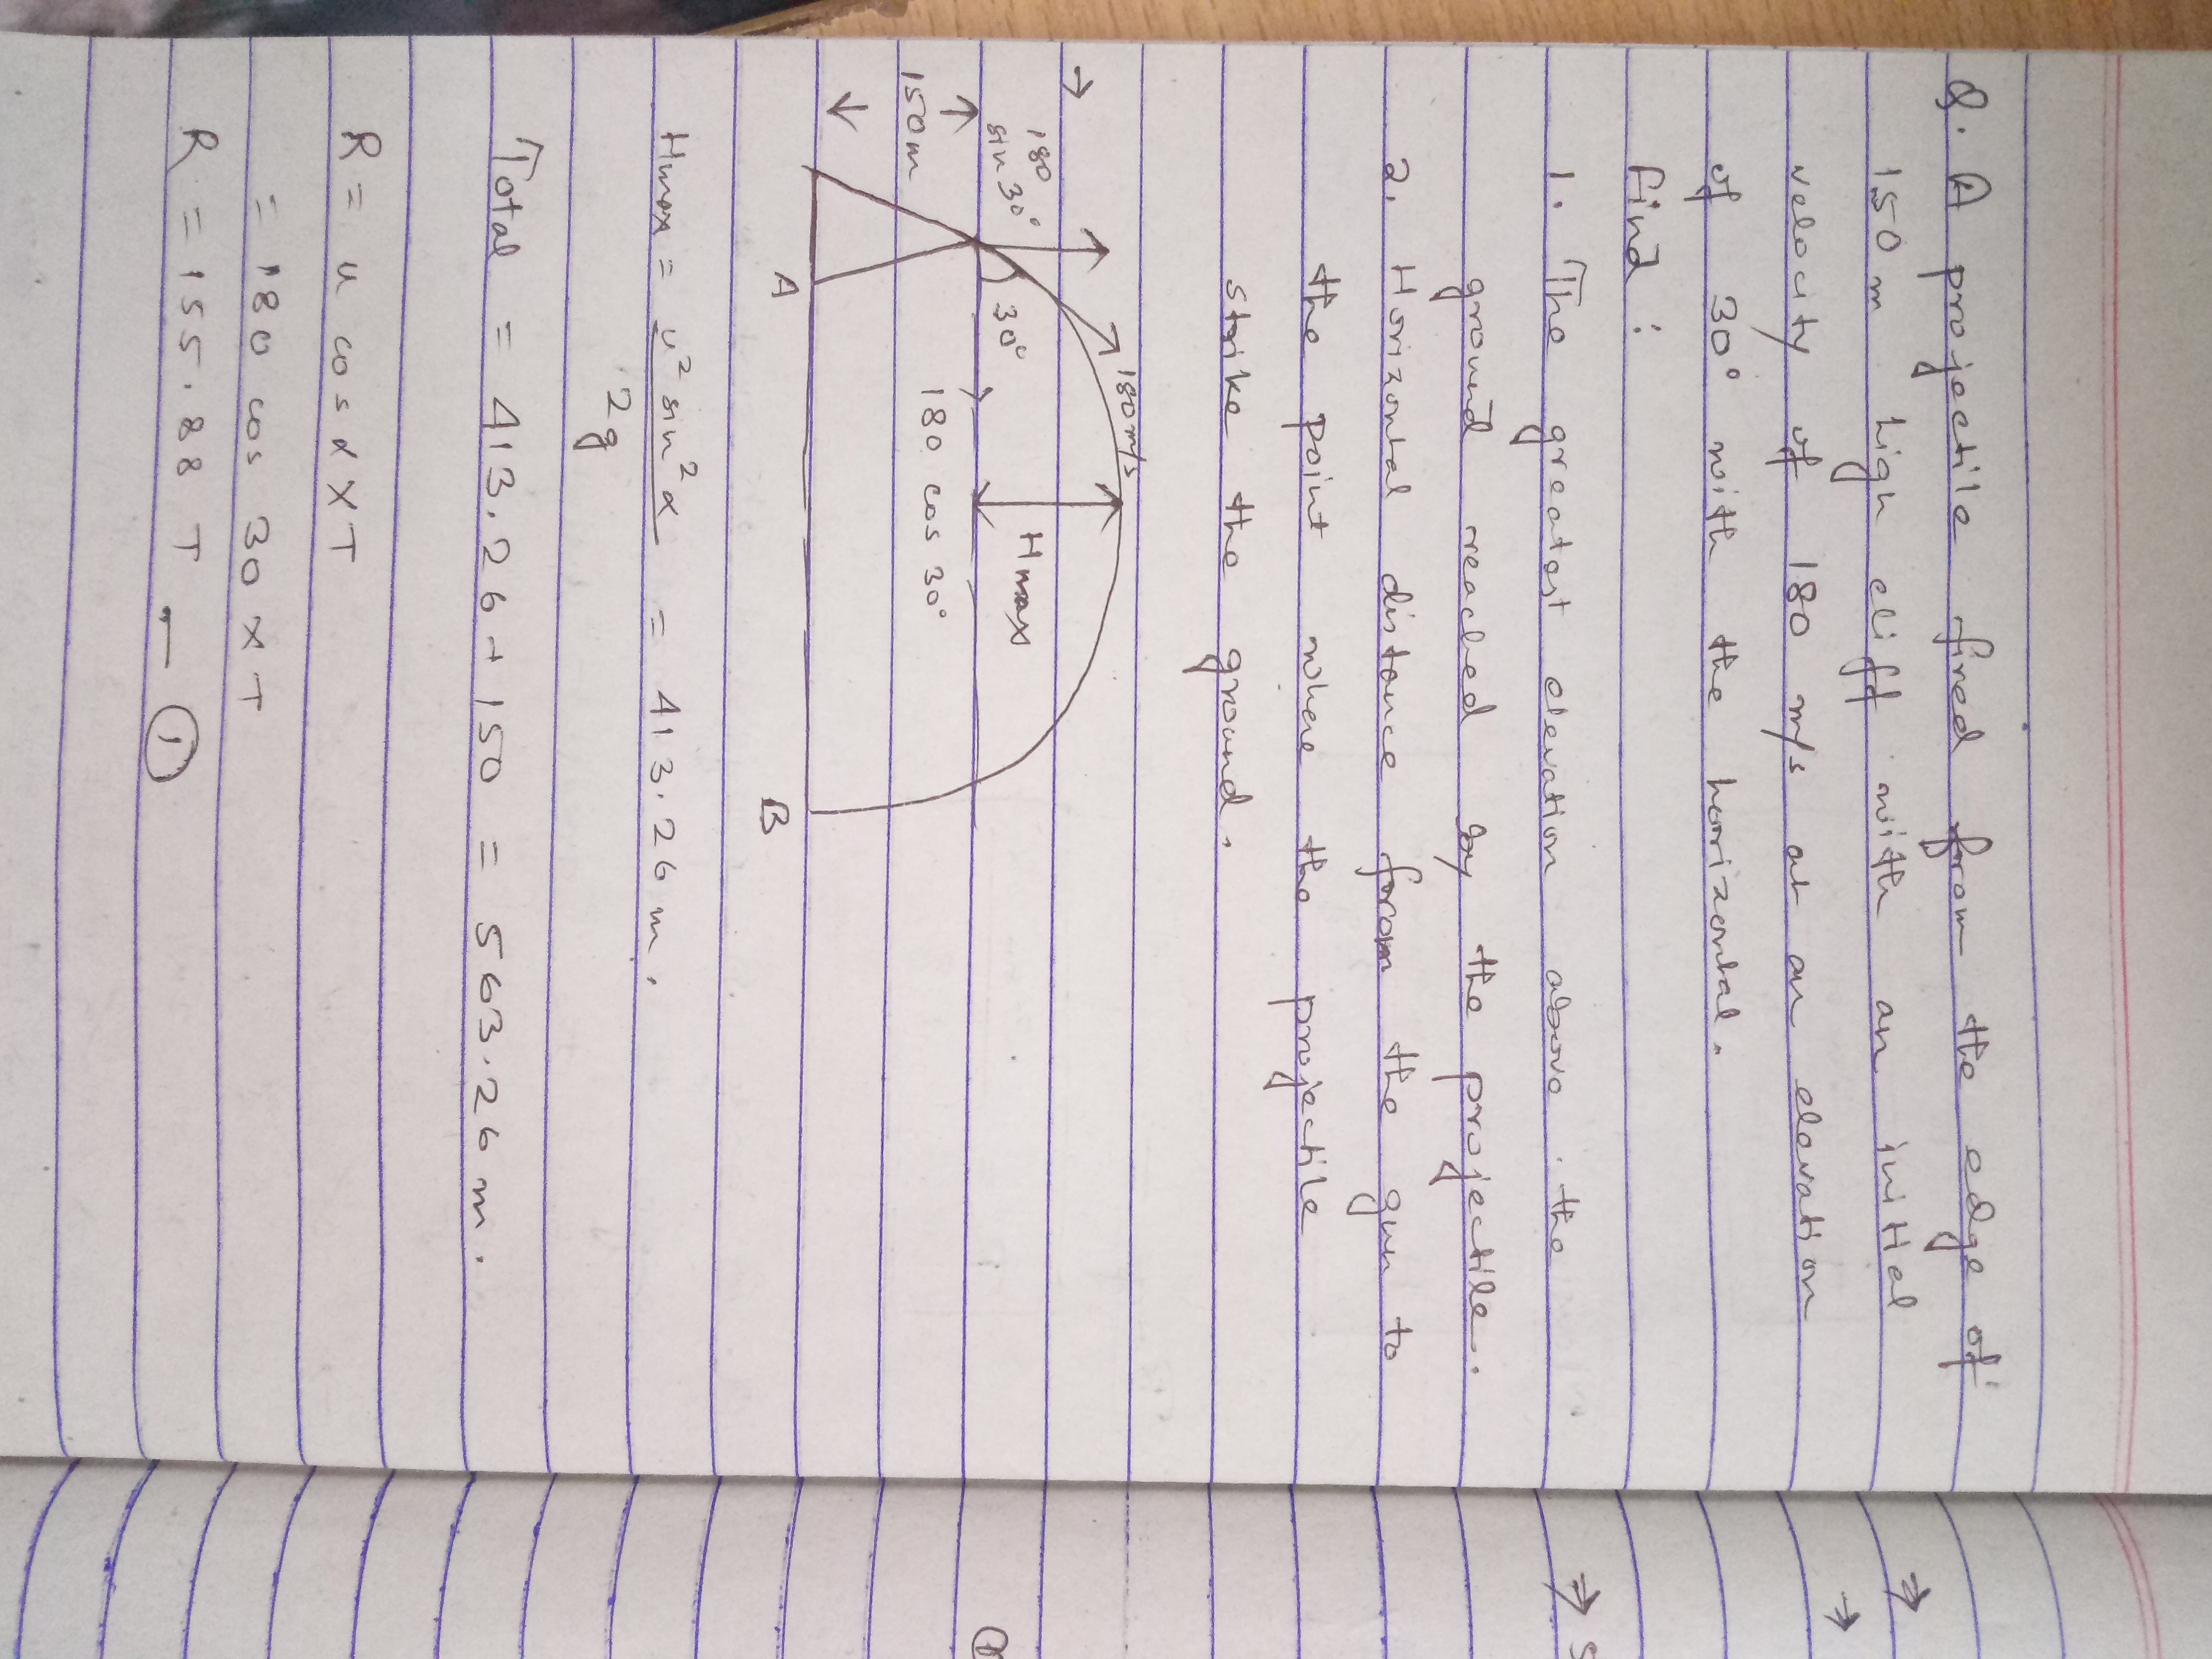 Q. A projectile fired from the edge of
150 m high cliff with an initial
velocity of 180 m/s at an elevation
of 30° with the horizontal.
find :
1. The greatest elevation above the
ground reached by the projectile.
2. Horizontal distance from the gun to
the point where the projectile
strike the ground.
→ 180 m/s
180
sin 30°
30°
Hmax
150m
180 cos 30°
A B
Hmax = u² sin² α / 2g = 413.26 m.
Total = 413.26 + 150 = 563.26 m.
R = u cos α × T
= 180 cos 30 × T
R = 155.88 T — ①